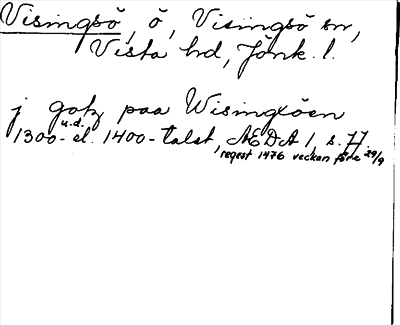 Visingsö, ö, Visingsö sn,
Vista hd, Jönk. l.
j gotz paa Wisingxöen
u.d.
1300- el. 1400-talet, AEDA 1, s. 77.
regest 1476 veckan före 29/9